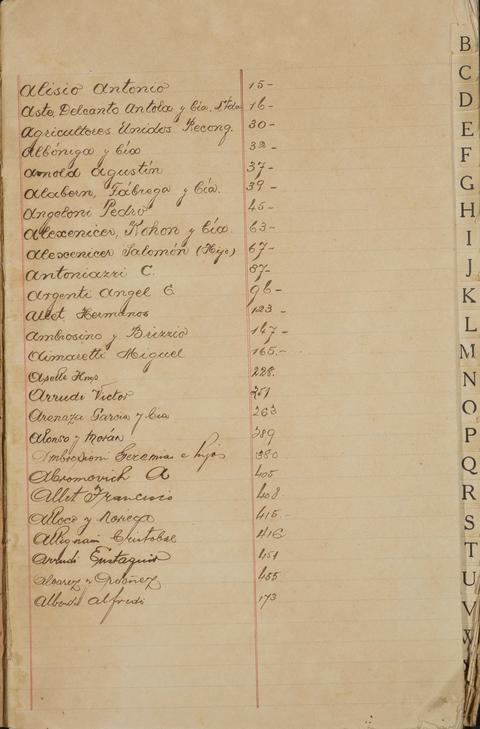 Alisio Antonio 15-
Aste, Delcanto Antola y Cía. Ltda 16-
Agricultores Unidos Recong. 30-
Albóniga y Cía 32-
Arnold Agustín 37-
Alabern, Fábrega y Cía. 39-
Angeloni Pedro 45-
Alexenicer, Kohon y Cía. 63-
Alexenicer Salomón (Hijo) 67-
Antoniazzi C. 87-
Argenti Angel E. 96-
Allet Hermanos 123-
Ambrosino y Brizzio 147-
Aimaretti Miguel 165.-
Hnos 228.
Arrudi Víctor 251
Arenaza García y Cía 263
Alonso y Morán 289
Geremias e hijos 380
Abromovich A 405
Allet Francisco 408
y Noriega 415.-
Cristobal 416
Arrudi Eustaquio 451
Alvarez y Ordoñez 455
Alfredo 173
B
C
D
E
F
G
H
I
J
K
L
M
N
O
P
Q
R
S
T
U
V
W